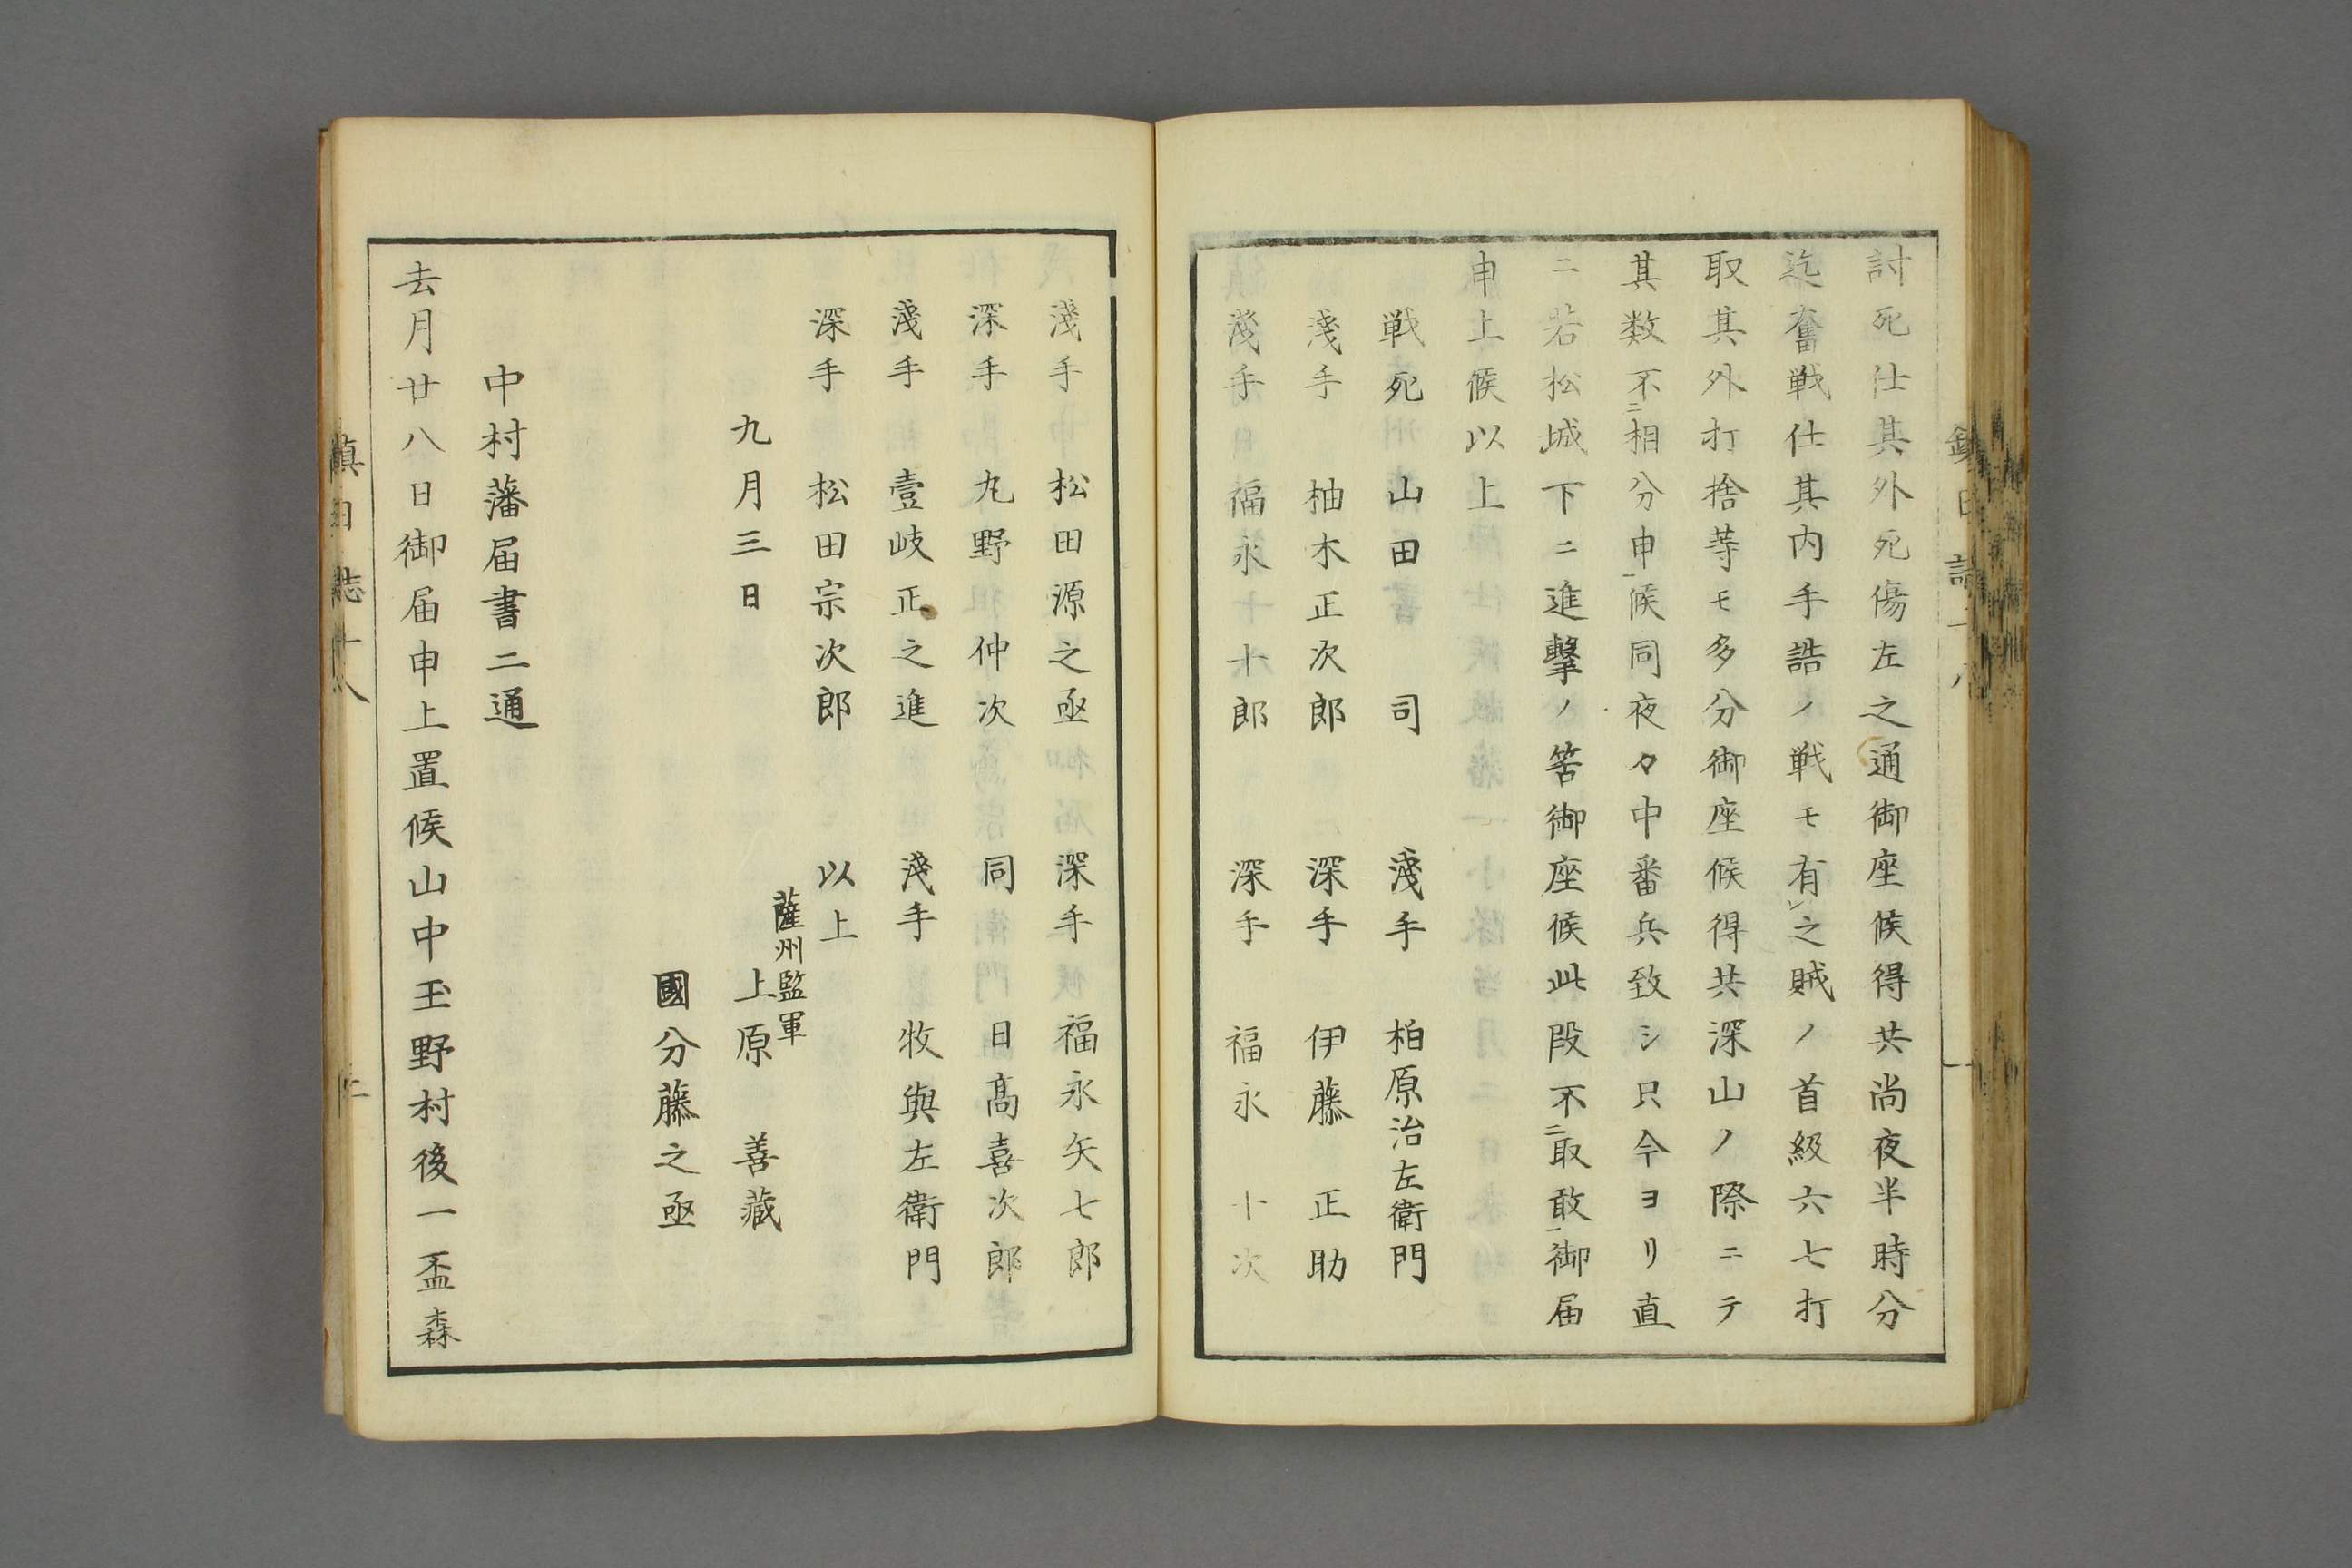 討死仕其外死傷左之通御座候得共尚夜半時分
迄奮戦仕其内手詰ノ戦モ有レ之賊ノ首級六七打
取其外打捨等モ多分御座候得共深山ノ際ニテ
其数不二相分申一候同夜々中番兵致シ只今ヨリ直
ニ若松城下ニ進撃ノ筈御座候此段不二取敢一御届
申上候以上
戦死 山田 司 淺手 柏原治左衛門
淺手 柚木正次郎 深手 伊藤 正助
淺手 福永十十郎 深手 福永 十次
淺手 松田源之亟 深手 福永矢七郎
深手 九野 仲次 同 日高喜次郎
淺手 壹岐正之進 淺手 牧與左衛門
深手 松田宗次郎 以上
薩州監軍
九月三日 上原 善藏
國分藤之亟
中村藩届書二通
去月廿八日御届申上置候山中玉野村後一盃森
鎮日誌十八